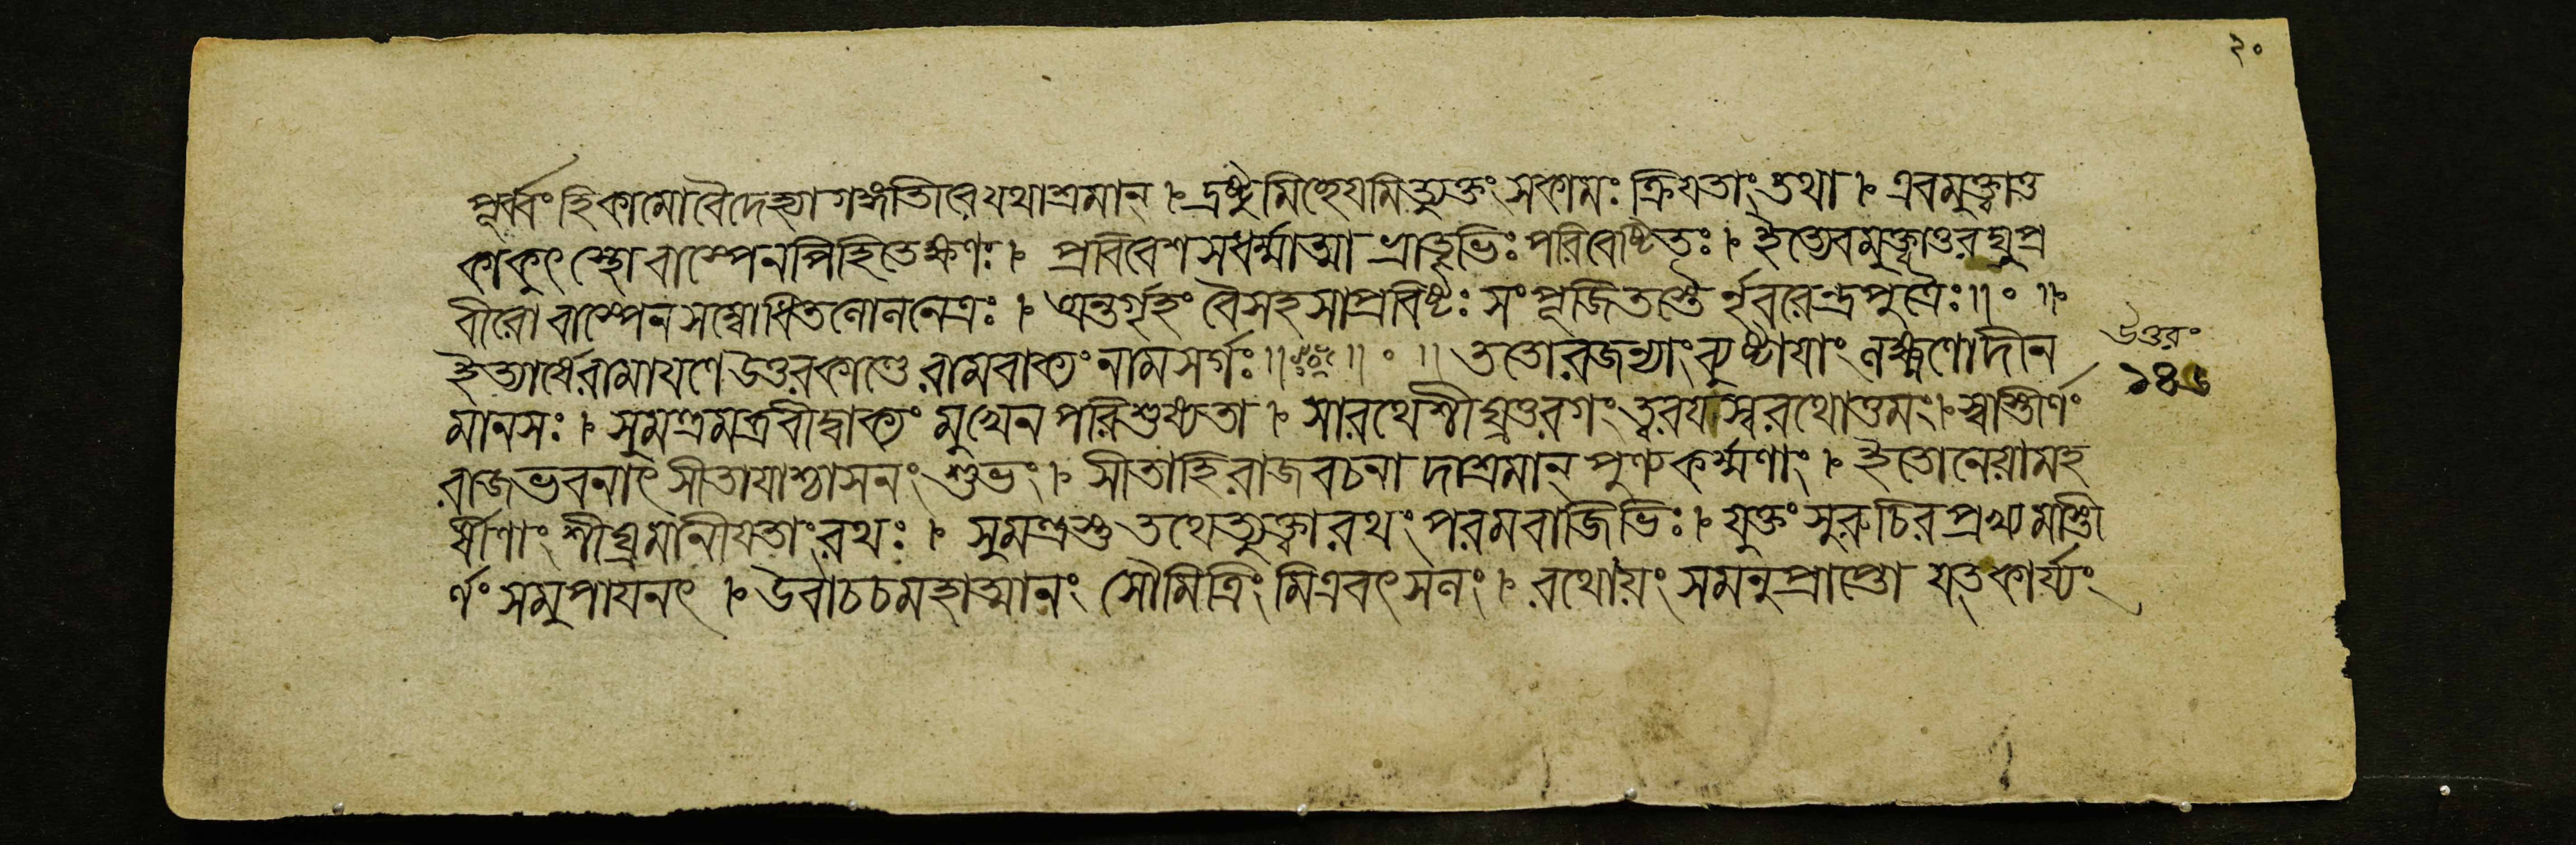 ২০
পূর্ব্বংহিকামোবৈদেহ্যাগঙ্গাতীরেযথাশ্রমান্ । দ্রষ্টুমিচ্ছেযমিত্যুক্তং সকামঃ ক্রিযতাংতথা । এবমুক্ত্বাত্ত
কাকুৎস্থো বাস্পেনপিহিতেক্ষণঃ । প্রবিবেশসধর্ম্মাত্মা ভ্রাতৃভিঃ পরিবেষ্টিতঃ । ইত্যেবমুক্ত্বাত্তরঘুপ্র
বীরো বাস্পেন সম্বোধিতলোলনেত্রঃ । অন্তর্গৃহং বৈসহসাপ্রবিষ্টঃ সংপূজিতস্তৈর্নৃবরেন্দ্রপুত্রৈঃ॥ ০ ॥
ইত্যার্ষেরামাযণে উত্তরকাণ্ডে রামবাক্যং নামসর্গঃ॥ ॥ ০ ॥ ততোরজন্যাংব্যুষ্টাযাং লক্ষ্মণোদীন
মানসঃ । সুমন্ত্রমব্রবীদ্বাক্যং মুখেন পরিশুষ্যতা । সারথেশীঘ্রতুরগং ত্বরযস্বরথোত্তমং । স্বাস্তীর্ণং
রাজভবনাৎ সীতাযাশ্চাসনং শুভং । সীতাহিরাজবচনাদাশ্রমান্ পুণ্যকর্ম্মণাং । ইতোনেয়ামহ
র্ষীণাং শীঘ্রমানীযতাংরথঃ । সুমন্ত্রস্তুতথেত্যুক্ত্বারথং পরমবাজিভিঃ । যুক্তংসুরুচিরপ্রখ্যমাস্তী
র্ণং সমুপাযনৎ । উবাচচমহাত্মানং সৌমিত্রিং মিত্রবৎসলং । রথোযং সমনুপ্রাপ্তো যত্কার্য্যং
উত্তরং
১৪৬